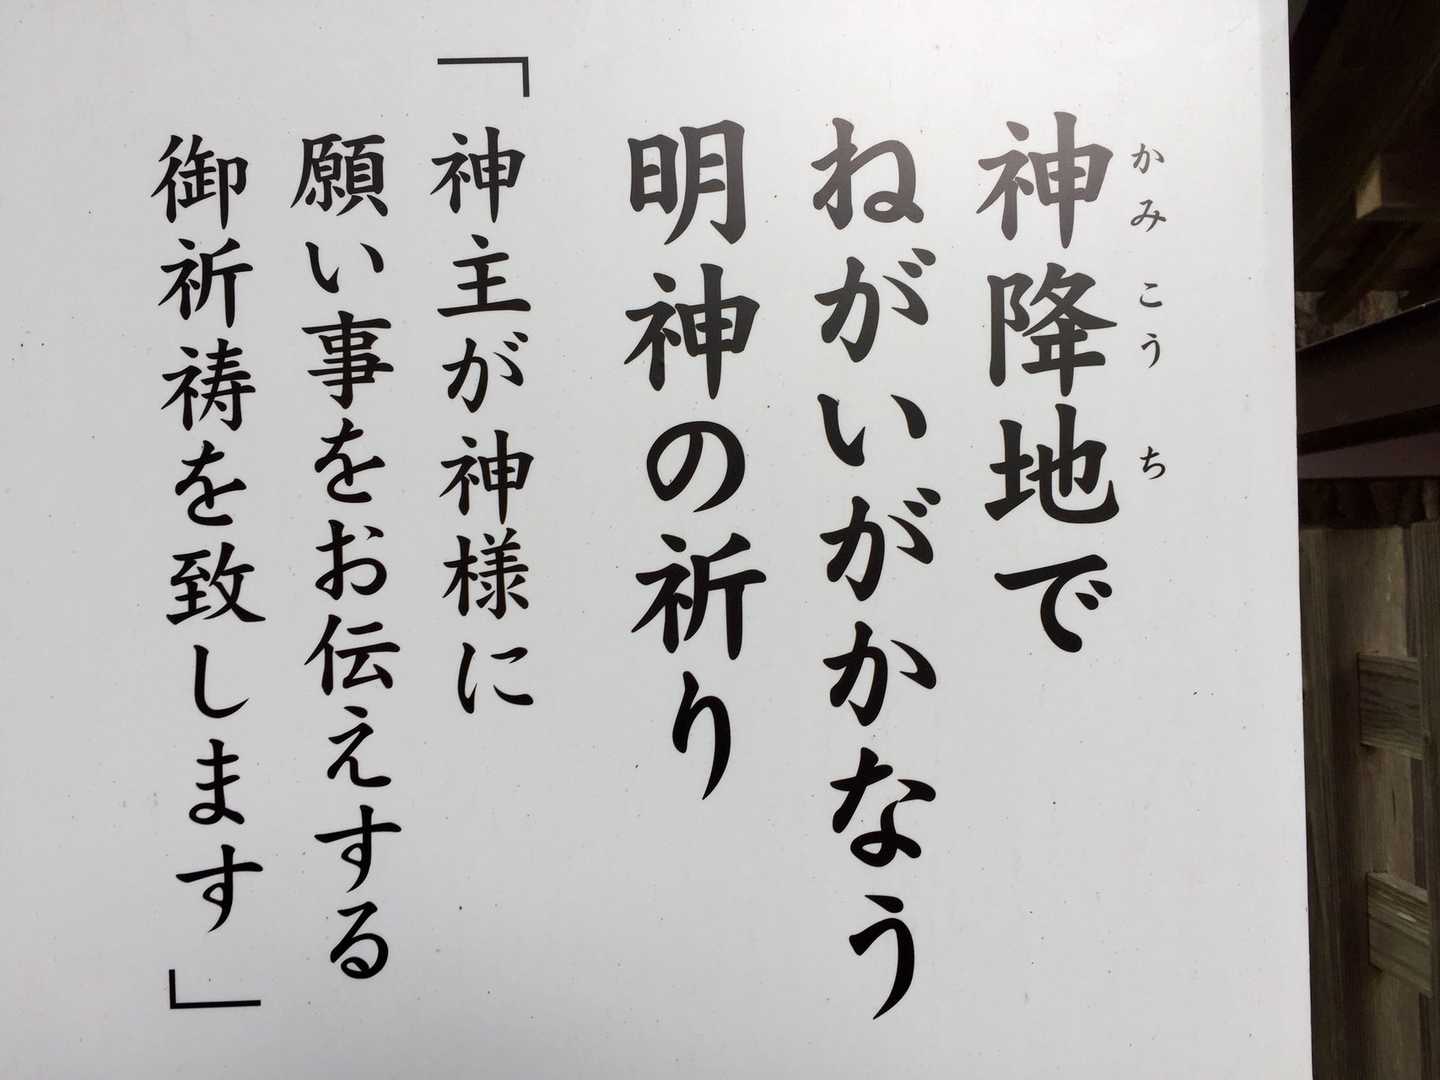 神降地で
かみこうち
ねがいがかなう
明神の祈り
「神主が神様に
願い事をお伝えする
御祈祷を致します」